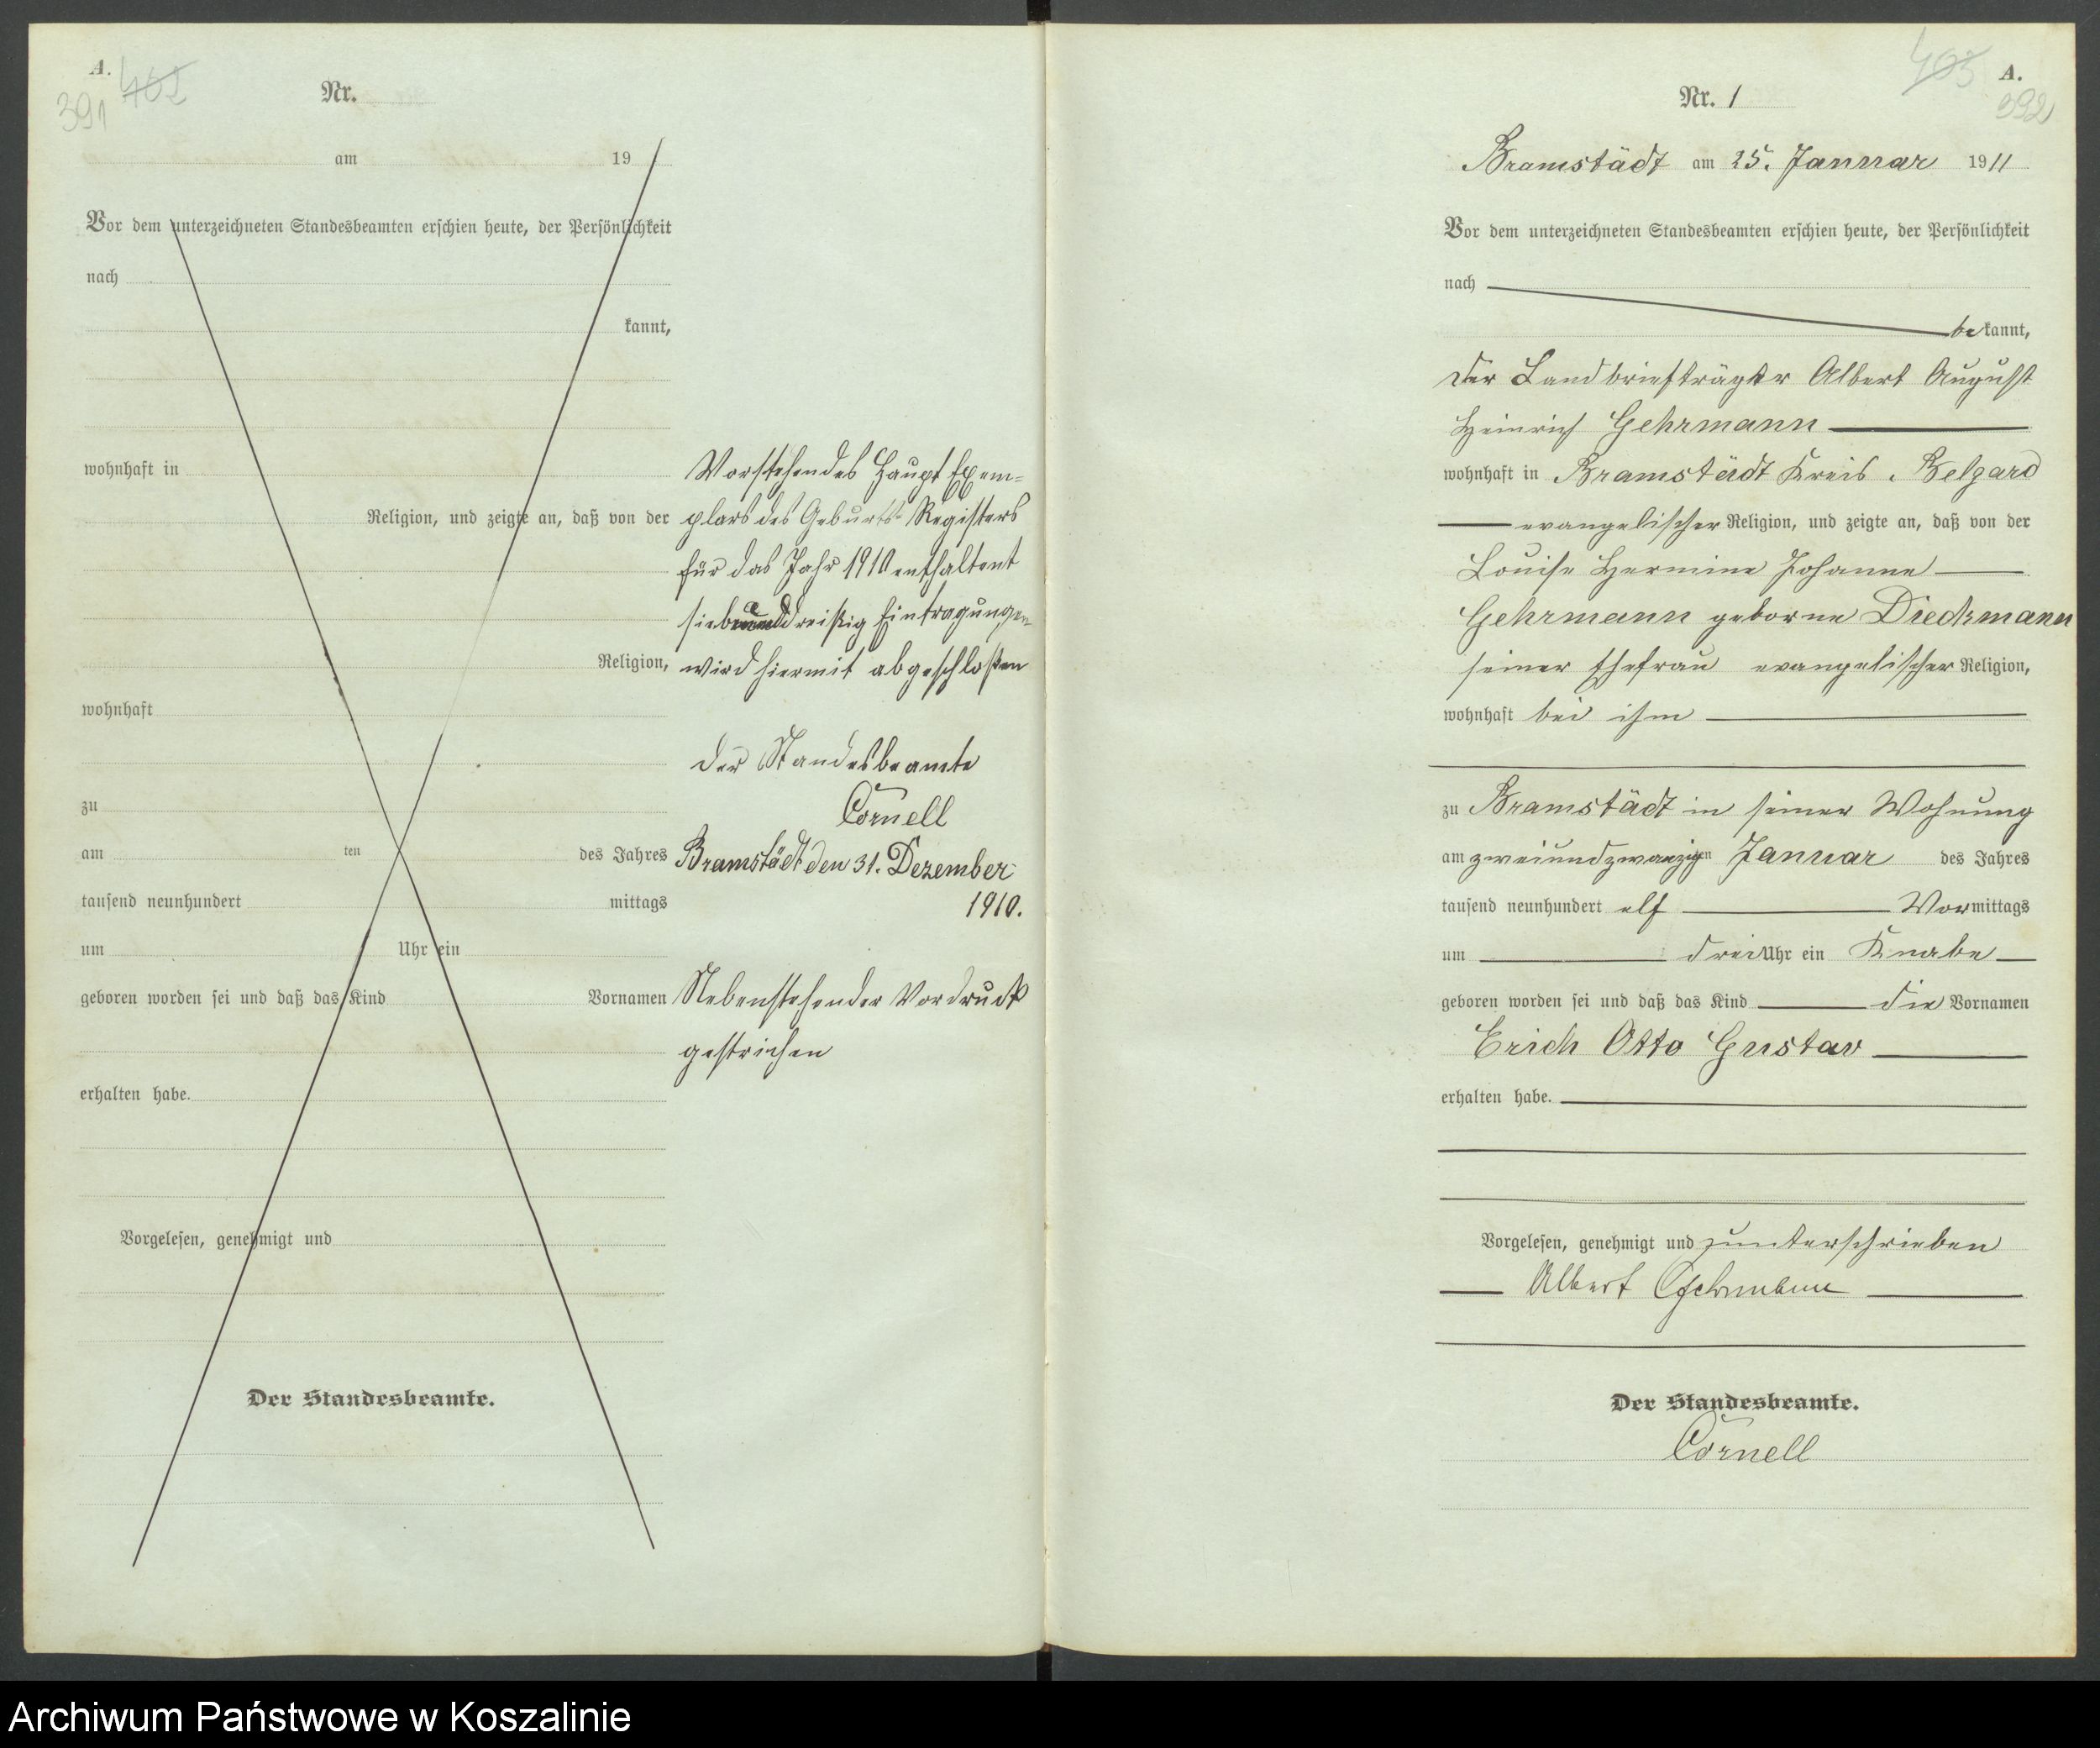 A.
402
391
Nr.
am 19
Vor dem unterzeichneten Standesbeamten erschien heute, der Persönlichkeit
nach
kannt,
wohnhaft in
Religion, und zeigte an, daß von der
Religion,
wohnhaft
zu
am ten des Jahres
tausend neunhundert mittags
um Uhr ein
geboren worden sei und daß das Kind Vornamen
erhalten habe.
Vorgelesen, genehmigt und
Der Standesbeamte.
Vorstehendes Haupt Exem-
plars des Geburts-Registers
für das Jahr 1910 enthaltent
siebenunddreißig Eintragungen
wird hiermit abgeschloßen
Der Standesbeamte
Cornell
Bramstädt den 31. Dezember
1910.
Nebenstehender Vordruck
gestrichen
403
A.
392
Nr. 1
Bramstädt am 25. Januar 1911
Vor dem unterzeichneten Standesbeamten erschien heute, der Persönlichkeit
nach
bekannt,
der Landbriefträger Albert August
Heinrich Gehrmann
wohnhaft in Bramstädt Kreis Belgard
evangelischer Religion, und zeigte an, daß von der
Louise Hermine Johanne
Gehrmann geborne Dieckmann
seiner Ehefrau evangelischer Religion,
wohnhaft bei ihm
zu Bramstädt in seiner Wohnung
am zweiundzwanzigten Januar des Jahres
tausend neunhundert elf Vormittags
um drei Uhr ein Knabe
geboren worden sei und daß das Kind die Vornamen
Erich Otto Gustav
erhalten habe.
Vorgelesen, genehmigt und unterschrieben
Albert Gehrmann
Der Standesbeamte.
Cornell
Archiwum Państwowe w Koszalinie